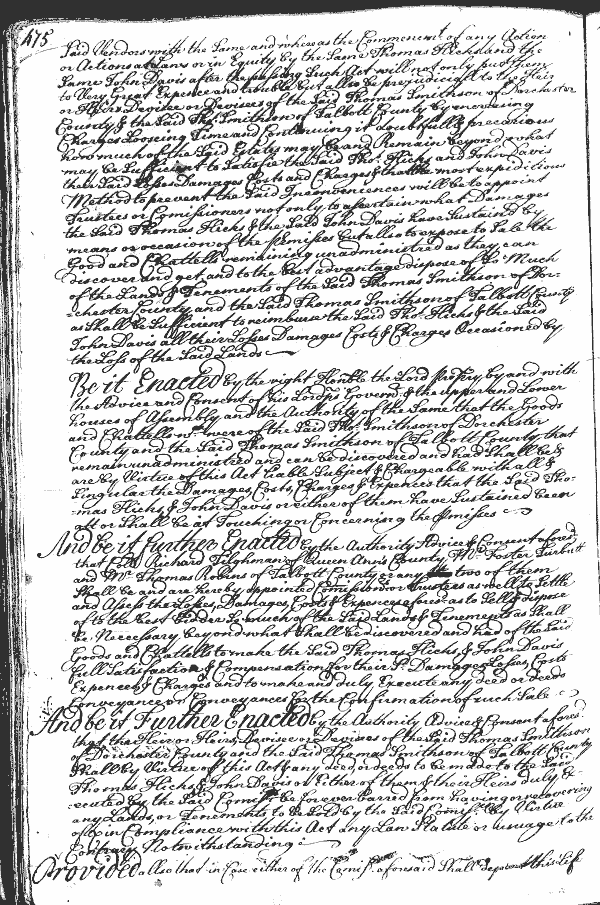 475
Said Vendors with the Same and whereas the Commencem.t of any Action
or Actions at Law or in Equity by the Same Thomas Hicks and the
Same John Davis after the passing Such Act will not only put them
to Very Great Expence and trouble but also be prejudicial to the Heir
or Heirs Devisee or Devisees of the Said Thomas Smithson of Dorchester
County & the Said Tho. Smithson of Talbott County by encreasing
Charges Looseing Time and Continuing it doubtfull & precarious
how much of the Said Estates may be and Remain beyond what
may be Sufficient to Satisfie the Said Tho. Hicks and John Davis
their Said Losses Damages Costs and Charges & that the most expeditious
Method to prevent the Said Inconveniences will be to appoint
Trustees or Comissioners not only to ascertain what Damages
the Said Thomas Hicks & the Said John Davis have Sustained by
means or occasion of the p.rmisses but also to expose to Sale the
Good and Chattells remaining unadministred as they can
discover and get and to the best advantage dispose of So Much
of the Lands & Tenements of the Said Thomas Smithson of Dor-
chester County and the Said Thomas Smithson of Talbott County
as Shall be Sufficient to reimburse the Said Tho. Hicks & the Said
John Davis all their Losses Damages Costs & Charges Occasioned by
the Loss of the Said Lands
Be it Enacted by the right Hon.ble the Lord Prop.ry by and with
the Advice and Consent of his Lordp.s Govern.r & the upper and Lower
houses of Assembly and the Authority of the Same that the Goods
and Chattells w.ch were of the Said Tho. Smithson of Dorchester
County and the Said Thomas Smithson of Talbott County that
remain unadministred and can be discovered and had Shall be &
are by Virtue of this Act Liable Subject & Chargeable with all &
Singular the Damages, Costs, Charges & Expences that the Said Tho-
mas Hicks, & John Davis or either of them have Sustained been
att or Shall be at Touching or Concerning the p.rmisses
And be it further Enacted by the Authority Advice & Consent afores.d
that Richard Tilghman of Queen Ann's County M.r Foster Turbutt
and M.r Thomas Robins of Talbott County or any two of them
Shall be and are hereby appointed Comission.rs or trustees as well to Settle
and Assess the Losses, Damages, Costs & Expences afores.d as to Sell & dispose
of to the best Bidder So much of the Said Lands & Tenements as Shall
be Necessary beyond what Shall be discovered and had of the Said
Goods and Chattells to make the Said Thomas Hicks, & John Davis
full Satisfaction & Compensation for their S.d Damages Losses, Costs
Expences & Charges and to make and duly Execute any deed or deeds
Conveyance or Conveyances for the Confirmation of such Sale
And be it Further Enacted by the Authority Advice & Consent afores.d
that the Heir or Heirs, Devisee or Devisees of the Said Thomas Smithson
of Dorchester County and the Said Thomas Smithson of Talbott County
Shall by Virtue of this Act & any deed or deeds to be made to the Said
Thomas Hicks & John Davis or Either of them & their Heirs duly Ex-
ecuted by the Said Comiss.rs be forever barred from having or recovering
any Lands, or Tenements to be Sold by the Said Comiss.rs by Virtue
of & in Compliance with this Act any Law Statute or usuage to the
Contrary Notwithstanding
Provided also that in Case either of the Comiss.rs aforesaid Shall depart this Life